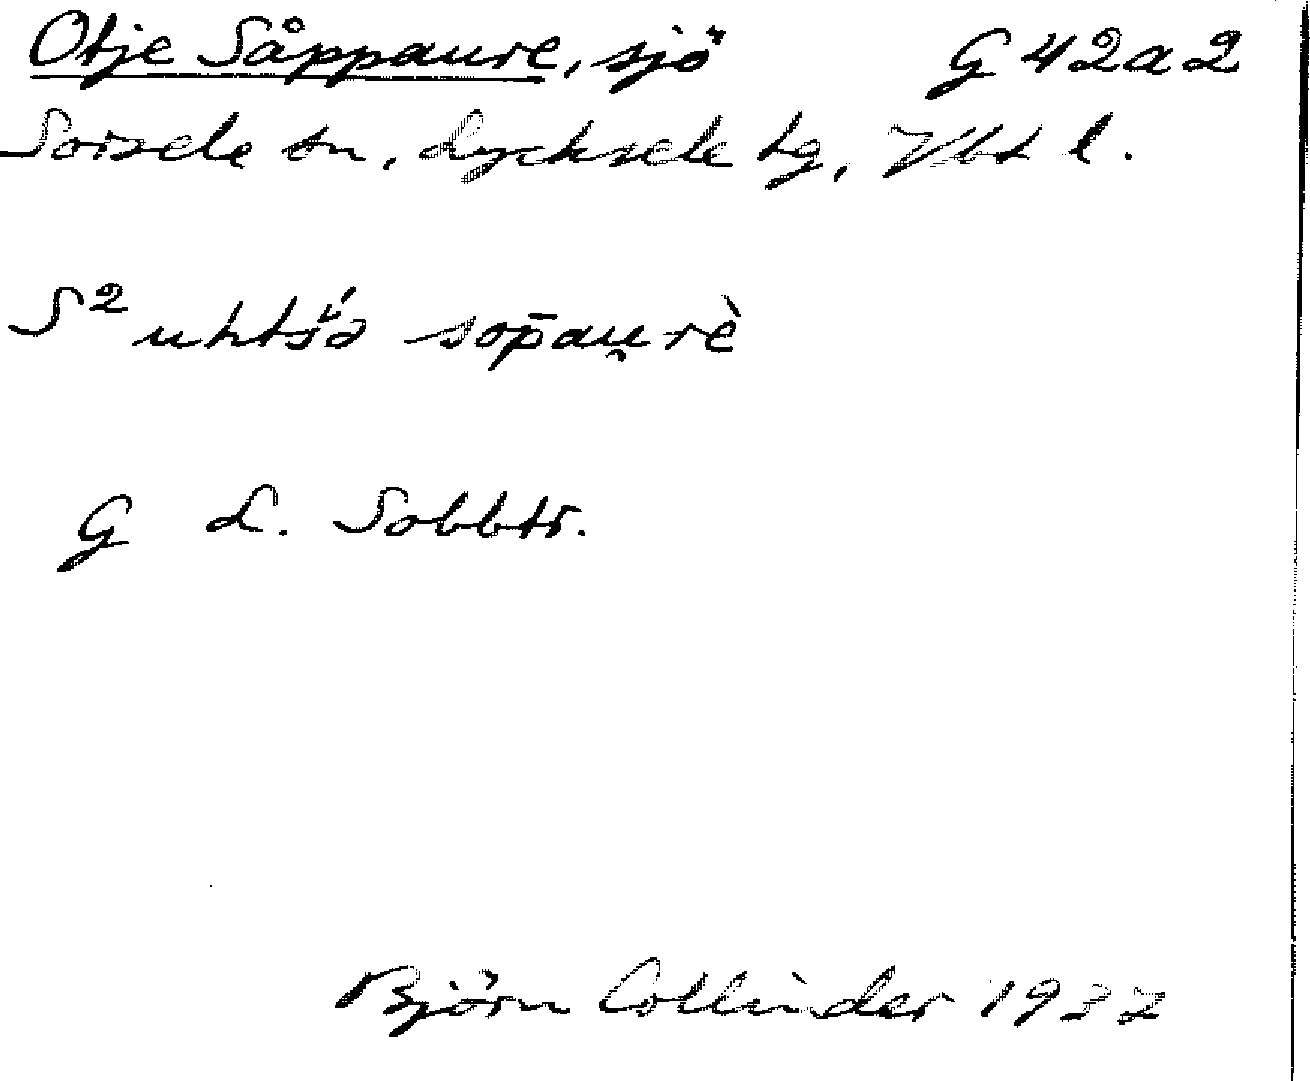 Otje Såppaure, sjö G 42a2
Sorsele sn, Lycksele lg, Vbt l.
S² uhtśa sop̄au̯rè
G L. Sobbtr.
Björn Collinder 1937